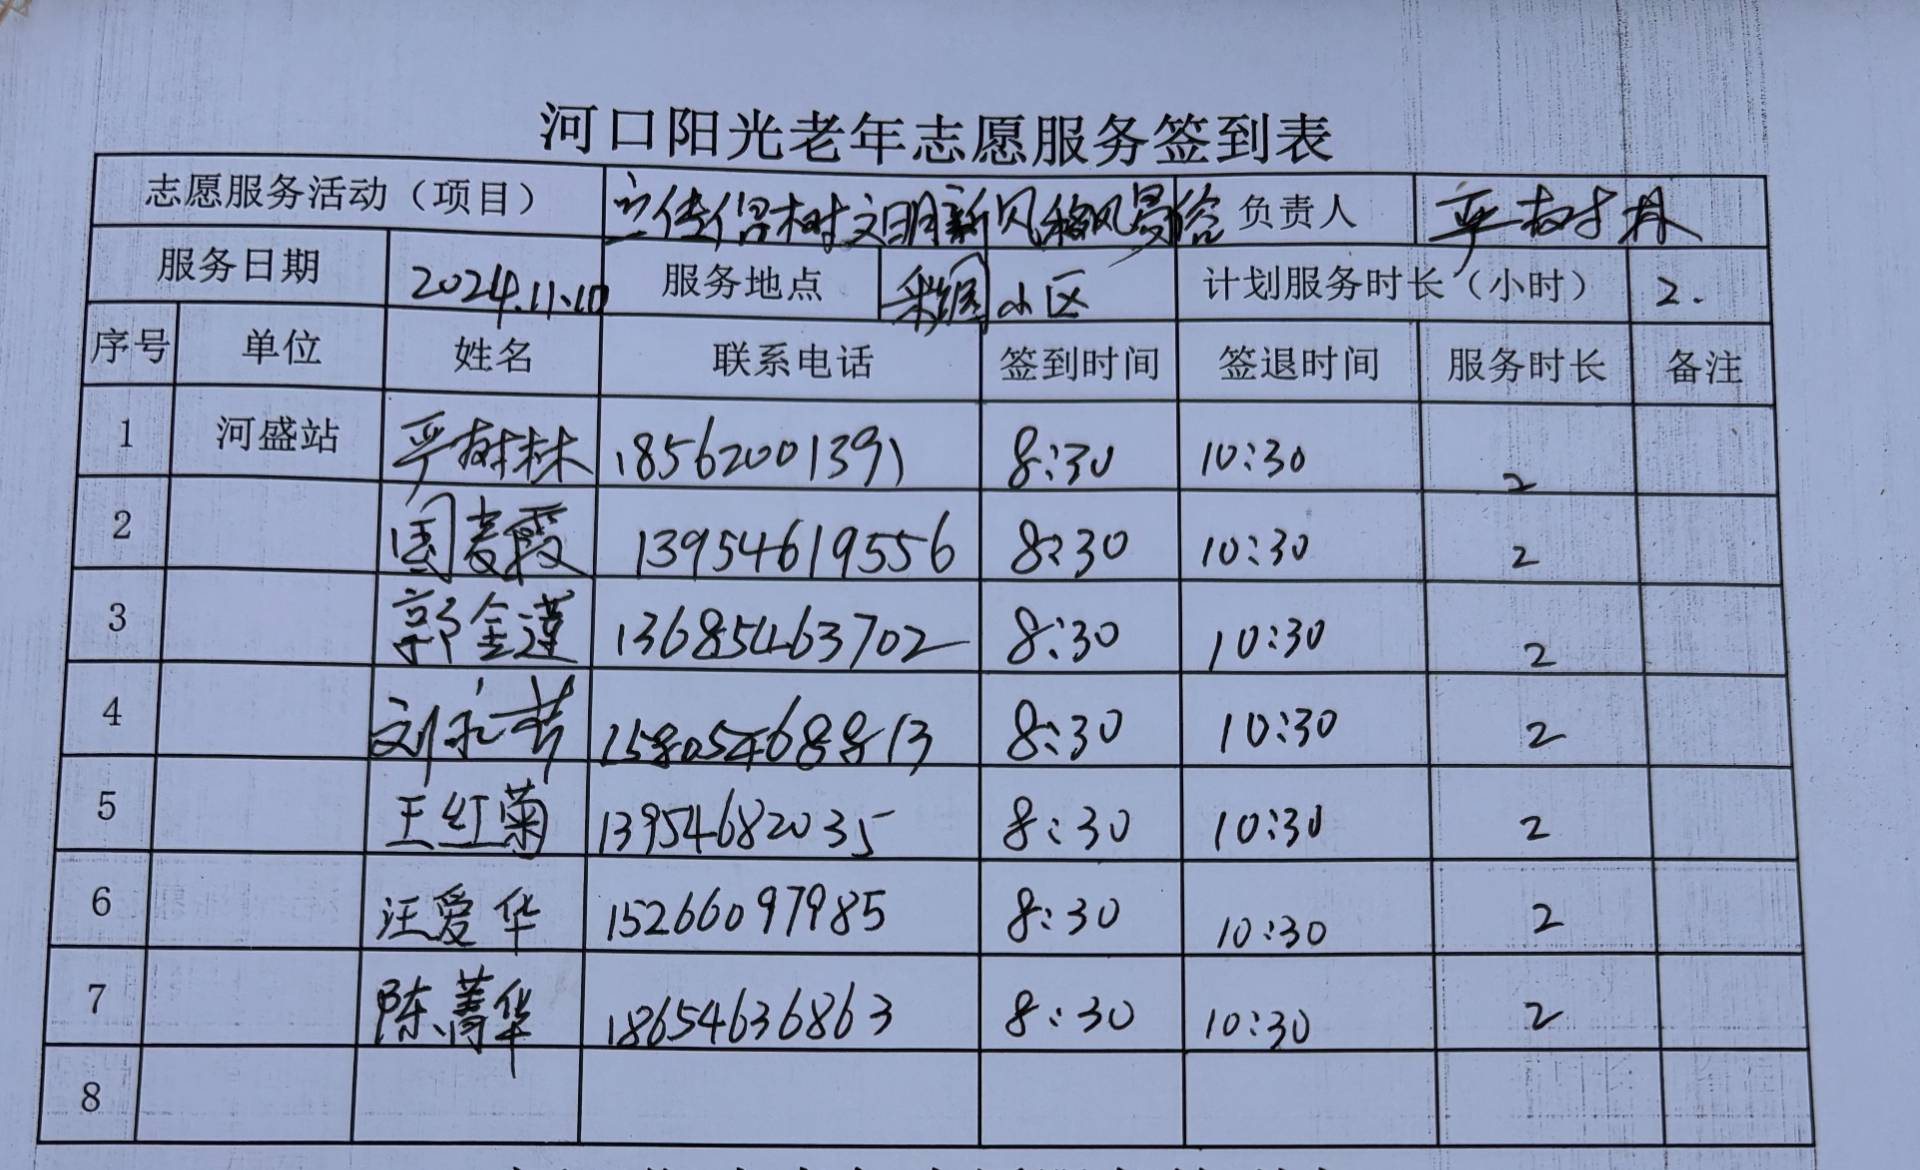 河口阳光老年志愿服务签到表
志愿服务活动（项目） 文明新风 负责人 严树林
服务日期 2024.11.10 服务地点 小区 计划服务时长（小时） 2.
序号 单位 姓名 联系电话 签到时间 签退时间 服务时长 备注
1 河盛站 严树林 18562001391 8:30 10:30 2
2 国 霞 13954619556 8:30 10:30 2
3 郭金莲 13685463702 8:30 10:30 2
4 刘永芳 15805468813 8:30 10:30 2
5 王红菊 13954682035 8:30 10:30 2
6 汪爱华 15266097985 8:30 10:30 2
7 陈菁华 18654636863 8:30 10:30 2
8